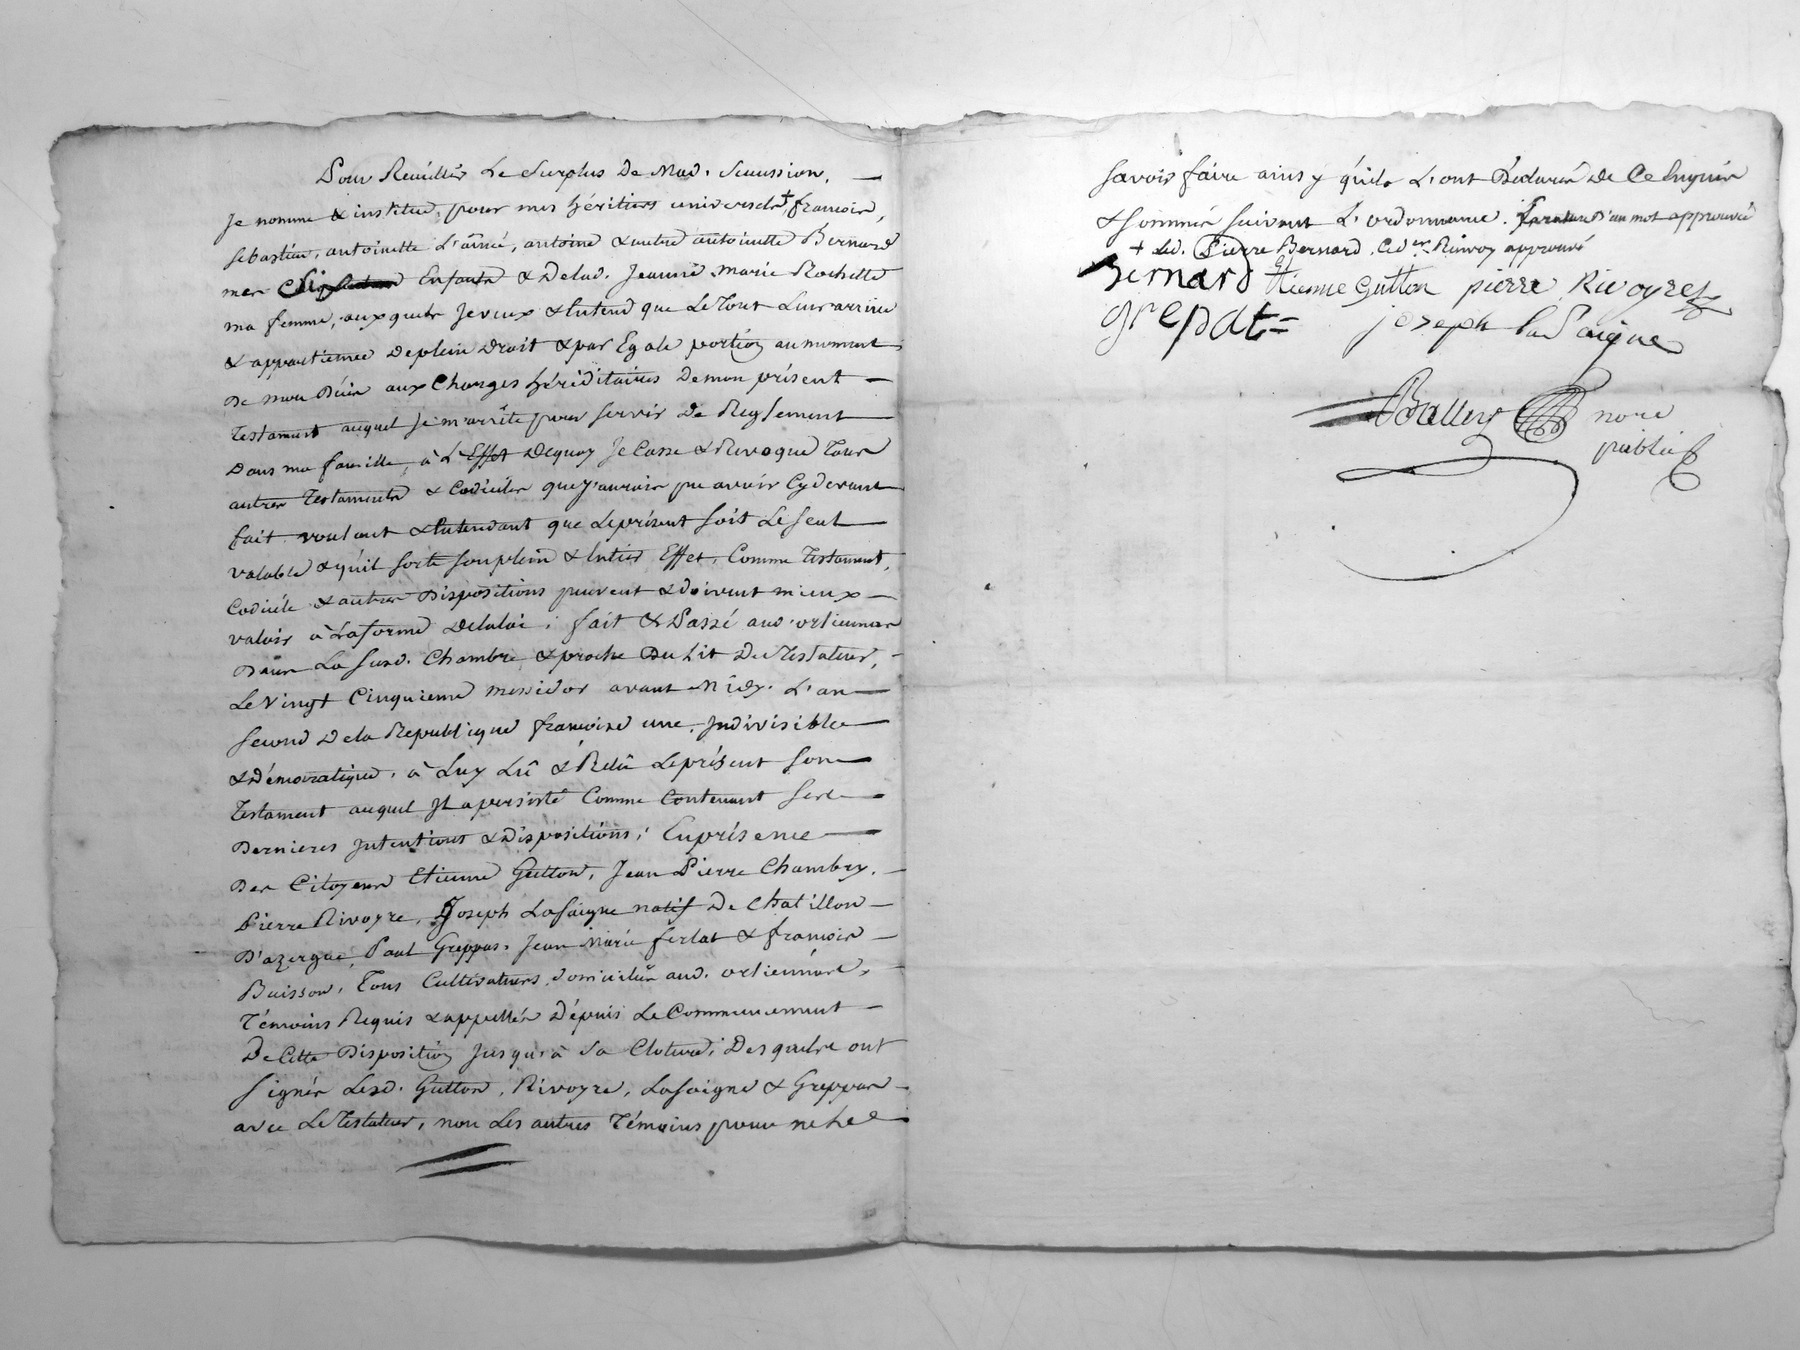 Pour Reuillir Le Surplus De Mad. Sucession,
Je nomme & institue pour mes héritiers universels + francois,
sebastien, antoinette L'ainée, antoine & autre antoinette Bernard
mes Enfants & Delad. Jeanne marie Rochette
ma femme, auxquels Jeveux & Entend que LeTout Leur arrive
& appartienne Deplein Droit & par Egale portion aumoment
De mon Décès aux Charges héréditaires Demon présent
Testament auquel Je m'arrête pour servir De Reglement
Dans ma famille, à L'Effet Dequoy Je Casse & Revoque Tous
autres Testaments & Codiciles que J'aurois pu avoir Cydevant
fait voulant & Entendant que Leprésent soit Le seul
valable & qu'il sorte sonplein & Entier Effet, Comme Testament,
Codicile & autres Dispositions peuvent & doivent mieux
valoir à Laforme Delaloi; fait & Passé aud. orliennas
Dans La susd. Chambre & proche Du Lit Du Testateur,
Le Vingt Cinquieme messidor avant Midy. L'an
second Dela Republique francoise une, Indivisible
& Démocratique, à Luy Lû & Relû Leprésent son
Testament auquel Il a persisté Comme Contenant ses
Dernieres Intentions & Dispositions; Enprésence
Des Citoyens Etienne Gutton, Jean Pierre Chambry,
Pierre Rivoyre, Joseph Lasaigne natif De Chatillon
D'azergue, Paul Greppas, Jean Marie ferlat & francois
Buisson, Tous Cultivateurs, domiciliés aud. orliennas,
Témoins Requis & appellés Dépuis Le Commencement
De Cette Disposition Jusqu'à Sa Cloture; Desquels ont
signés Lesd. Gutton, Rivoyre, Lasaigne & Greppas
avec Le Testateur, non Les autres Témoins pour ne Le
savoir faire ainsy qu'ils L'ont Déclaré De Ce Enquis
& sommés suivant L'ordonnance. D'un mot approuvé
+ Led. Pierre Bernard, approuvé
Bernard Etienne Gutton pierre Rivoyre
grepat = joseph la Saigne
nore
public